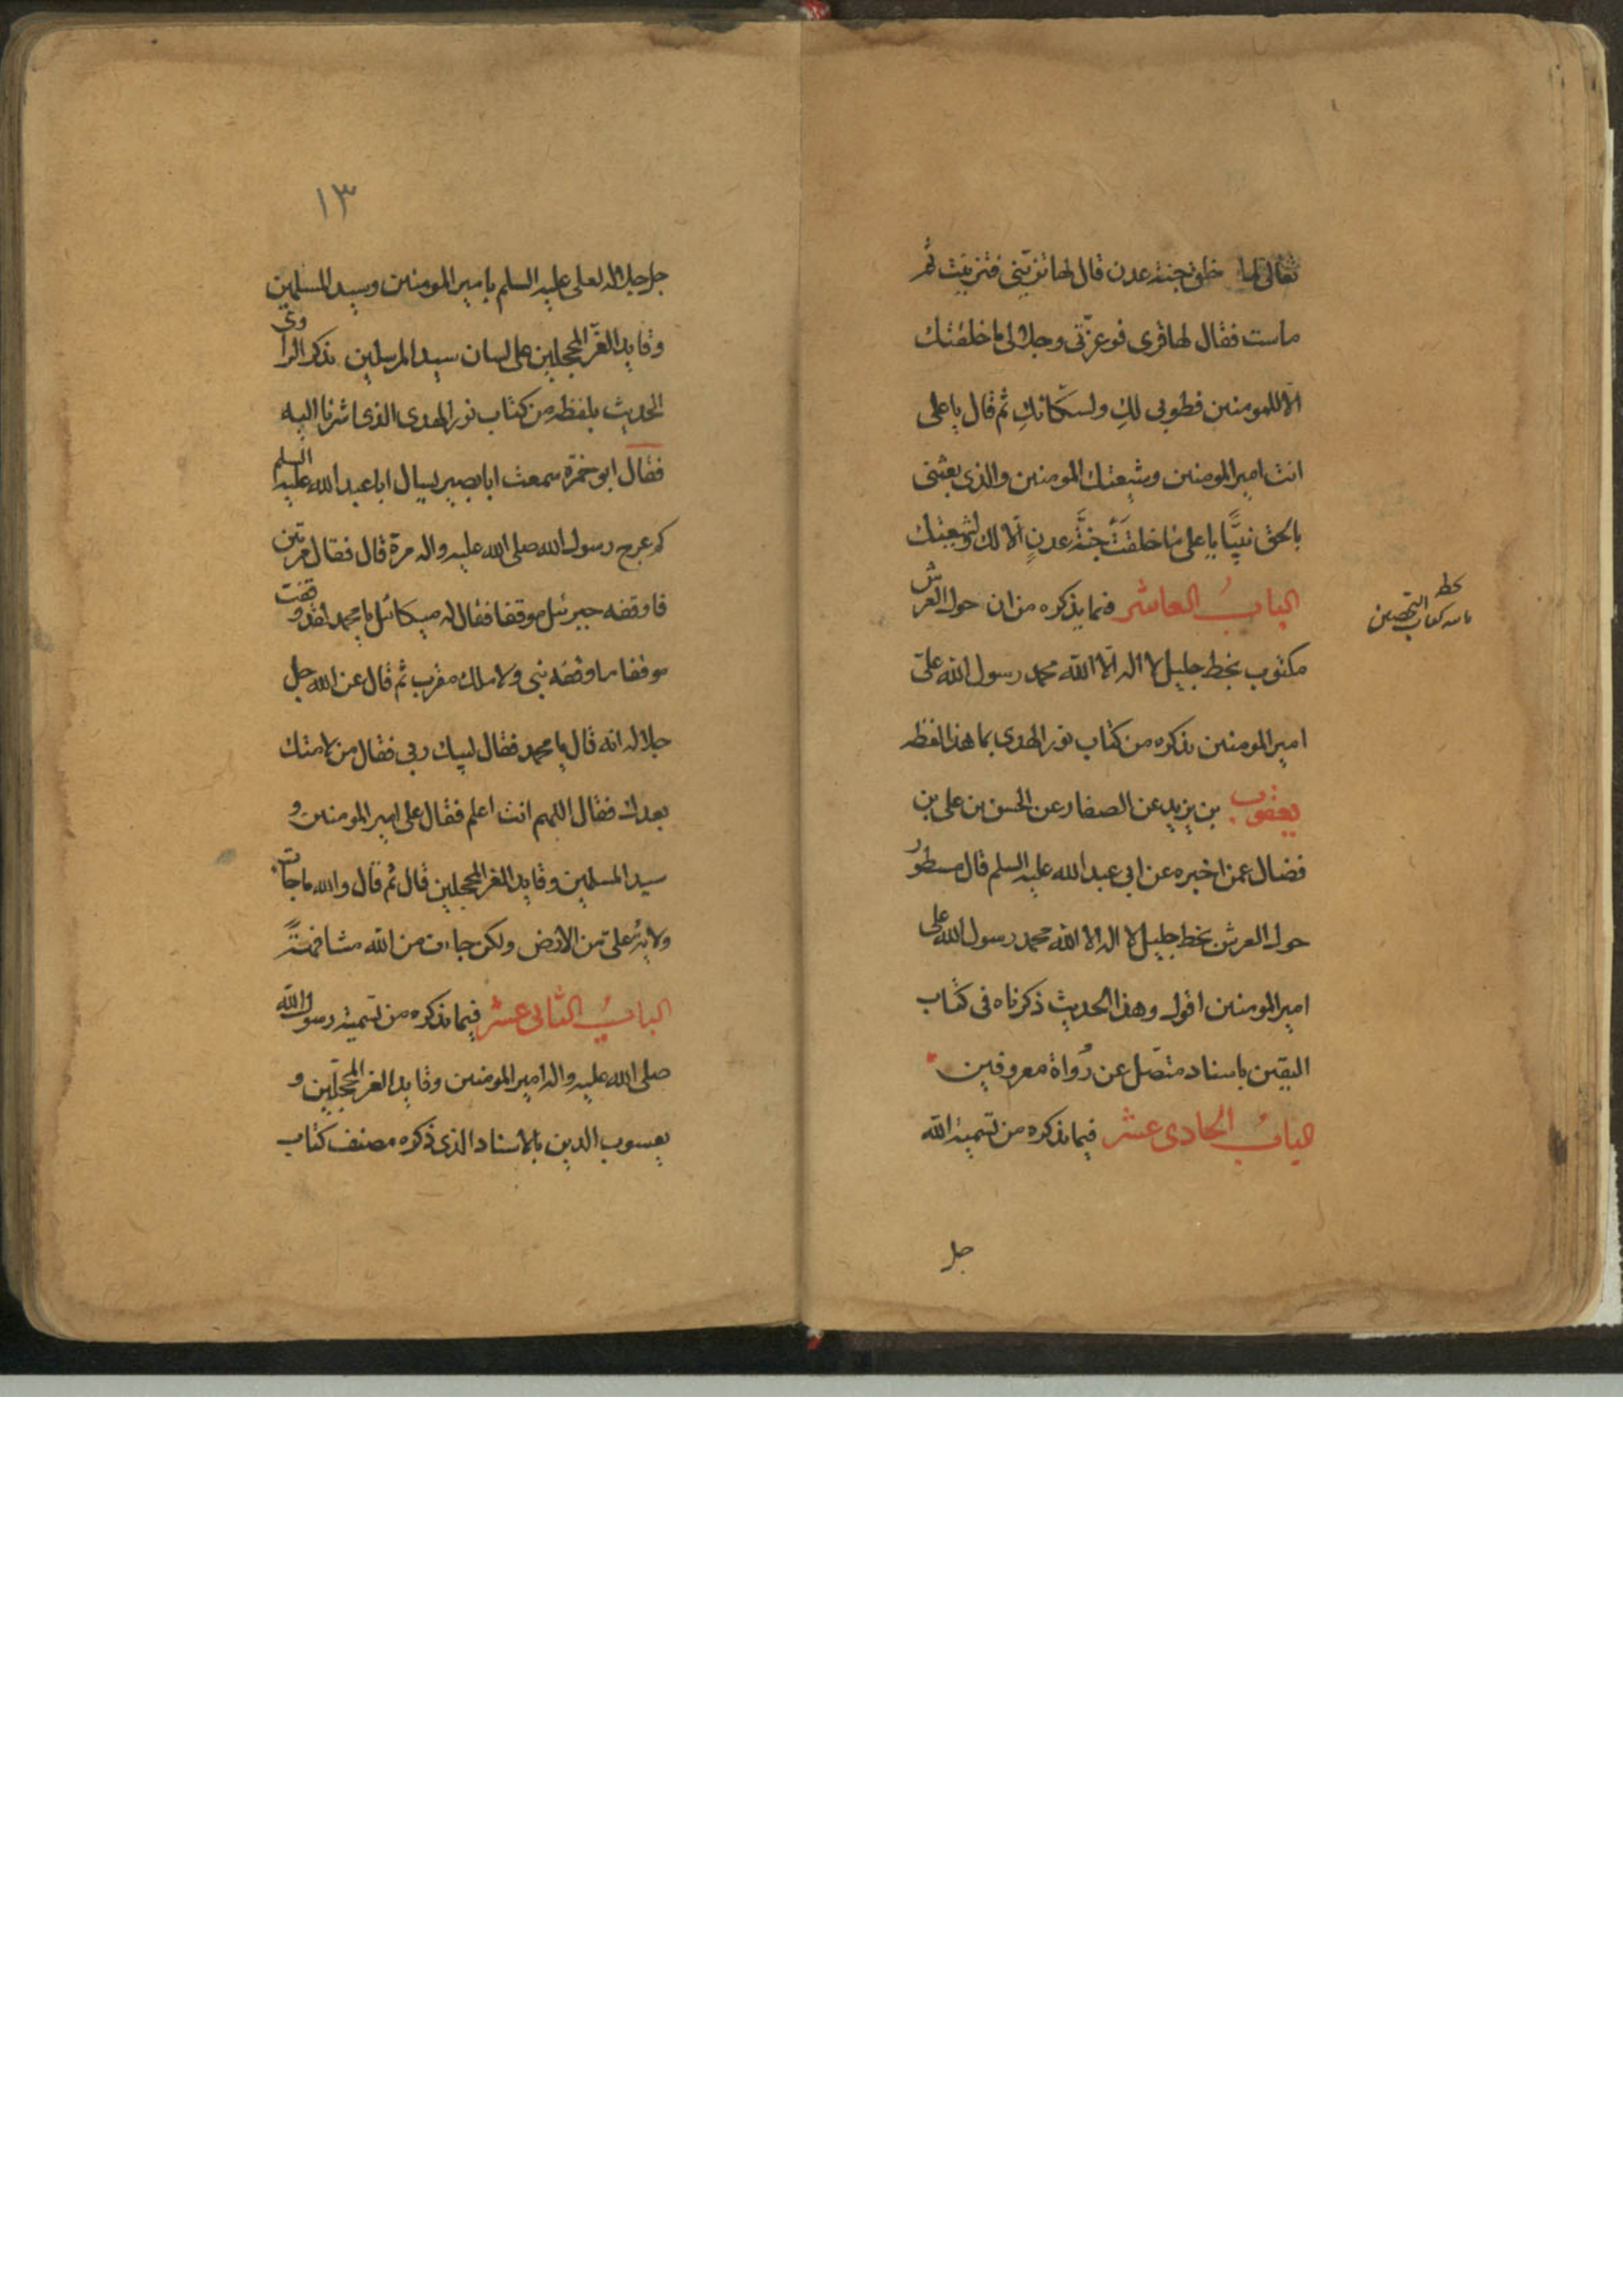 تعالى لما خلق جنة عدن قال لها تزيني فتزينت ثم
ماست فقال لها قرى فوعزتى وجلالى ما خلقتك
الا للمومنين فطوبى لكِ ولسكانكِ ثم قال يا على
انت امير المومنين وشيعتك المومنين والذى بعثنى
بالحق نبيًّا يا على ما خلقَتْ جنَّة عدنٍ الّا لك ولشيعتك
البابُ العاشر فيما يذكره من ان حول العرش
مكتوب بخط جليل لا اله الّا الله محمد رسول الله علىّ
امير المومنين نذكره من كتاب نور الهدى بما هذا لفظه
يعقوب بن يزيد عن الصفار عن الحسن بن على بن
فضال عمن اخبره عن ابى عبد الله عليه السلم قال مسطور
حول العرش بخط جليل لا اله الا الله محمد رسول الله على
امير المومنين اقول وهذا الحديث ذكرناه فى كتاب
اليقين باسناد متصل عن رُواة معروفين
البابُ الحادى عشر فيما نذكره من تسمية الله
جل
كتاب التحصين
١٣
جل جلاله لعلى عليه السلم بامير المومنين وسيد المسلمين
وقايد الغر المحجلين على لسان سيد المرسلين نذكر الراوى
الحديث بلفظه من كتاب نور الهدى الذى اشرنا اليه
فقال ابو حمزة سمعت ابا بصير يسال ابا عبد الله عليه السلم
كم عرج رسول الله صلى الله عليه واله مرة قال فقال مرتين
فاوقفه جبرئيل موقفا فقال له ميكائيل يا محمد لقد وقفت
موقفا ما وقفه نبى ولا ملك مقرب ثم قال عن الله جل
جلاله انه قال يا محمد فقال لبيك ربى فقال من لامتك
بعدك فقال اللهم انت اعلم فقال على امير المومنين و
سيد المسلمين وقايد الغر المحجلين قال ثم قال والله ما جات
ولاية علىّ من الارض ولكن جاءت من الله مشافهةً
البابُ الثانى عشر فيما نذكره من تسمية رسول الله
صلى الله عليه واله امير المومنين وقايد الغر المحجلين و
يعسوب الدين بالاسناد الذى ذكره مصنف كتاب